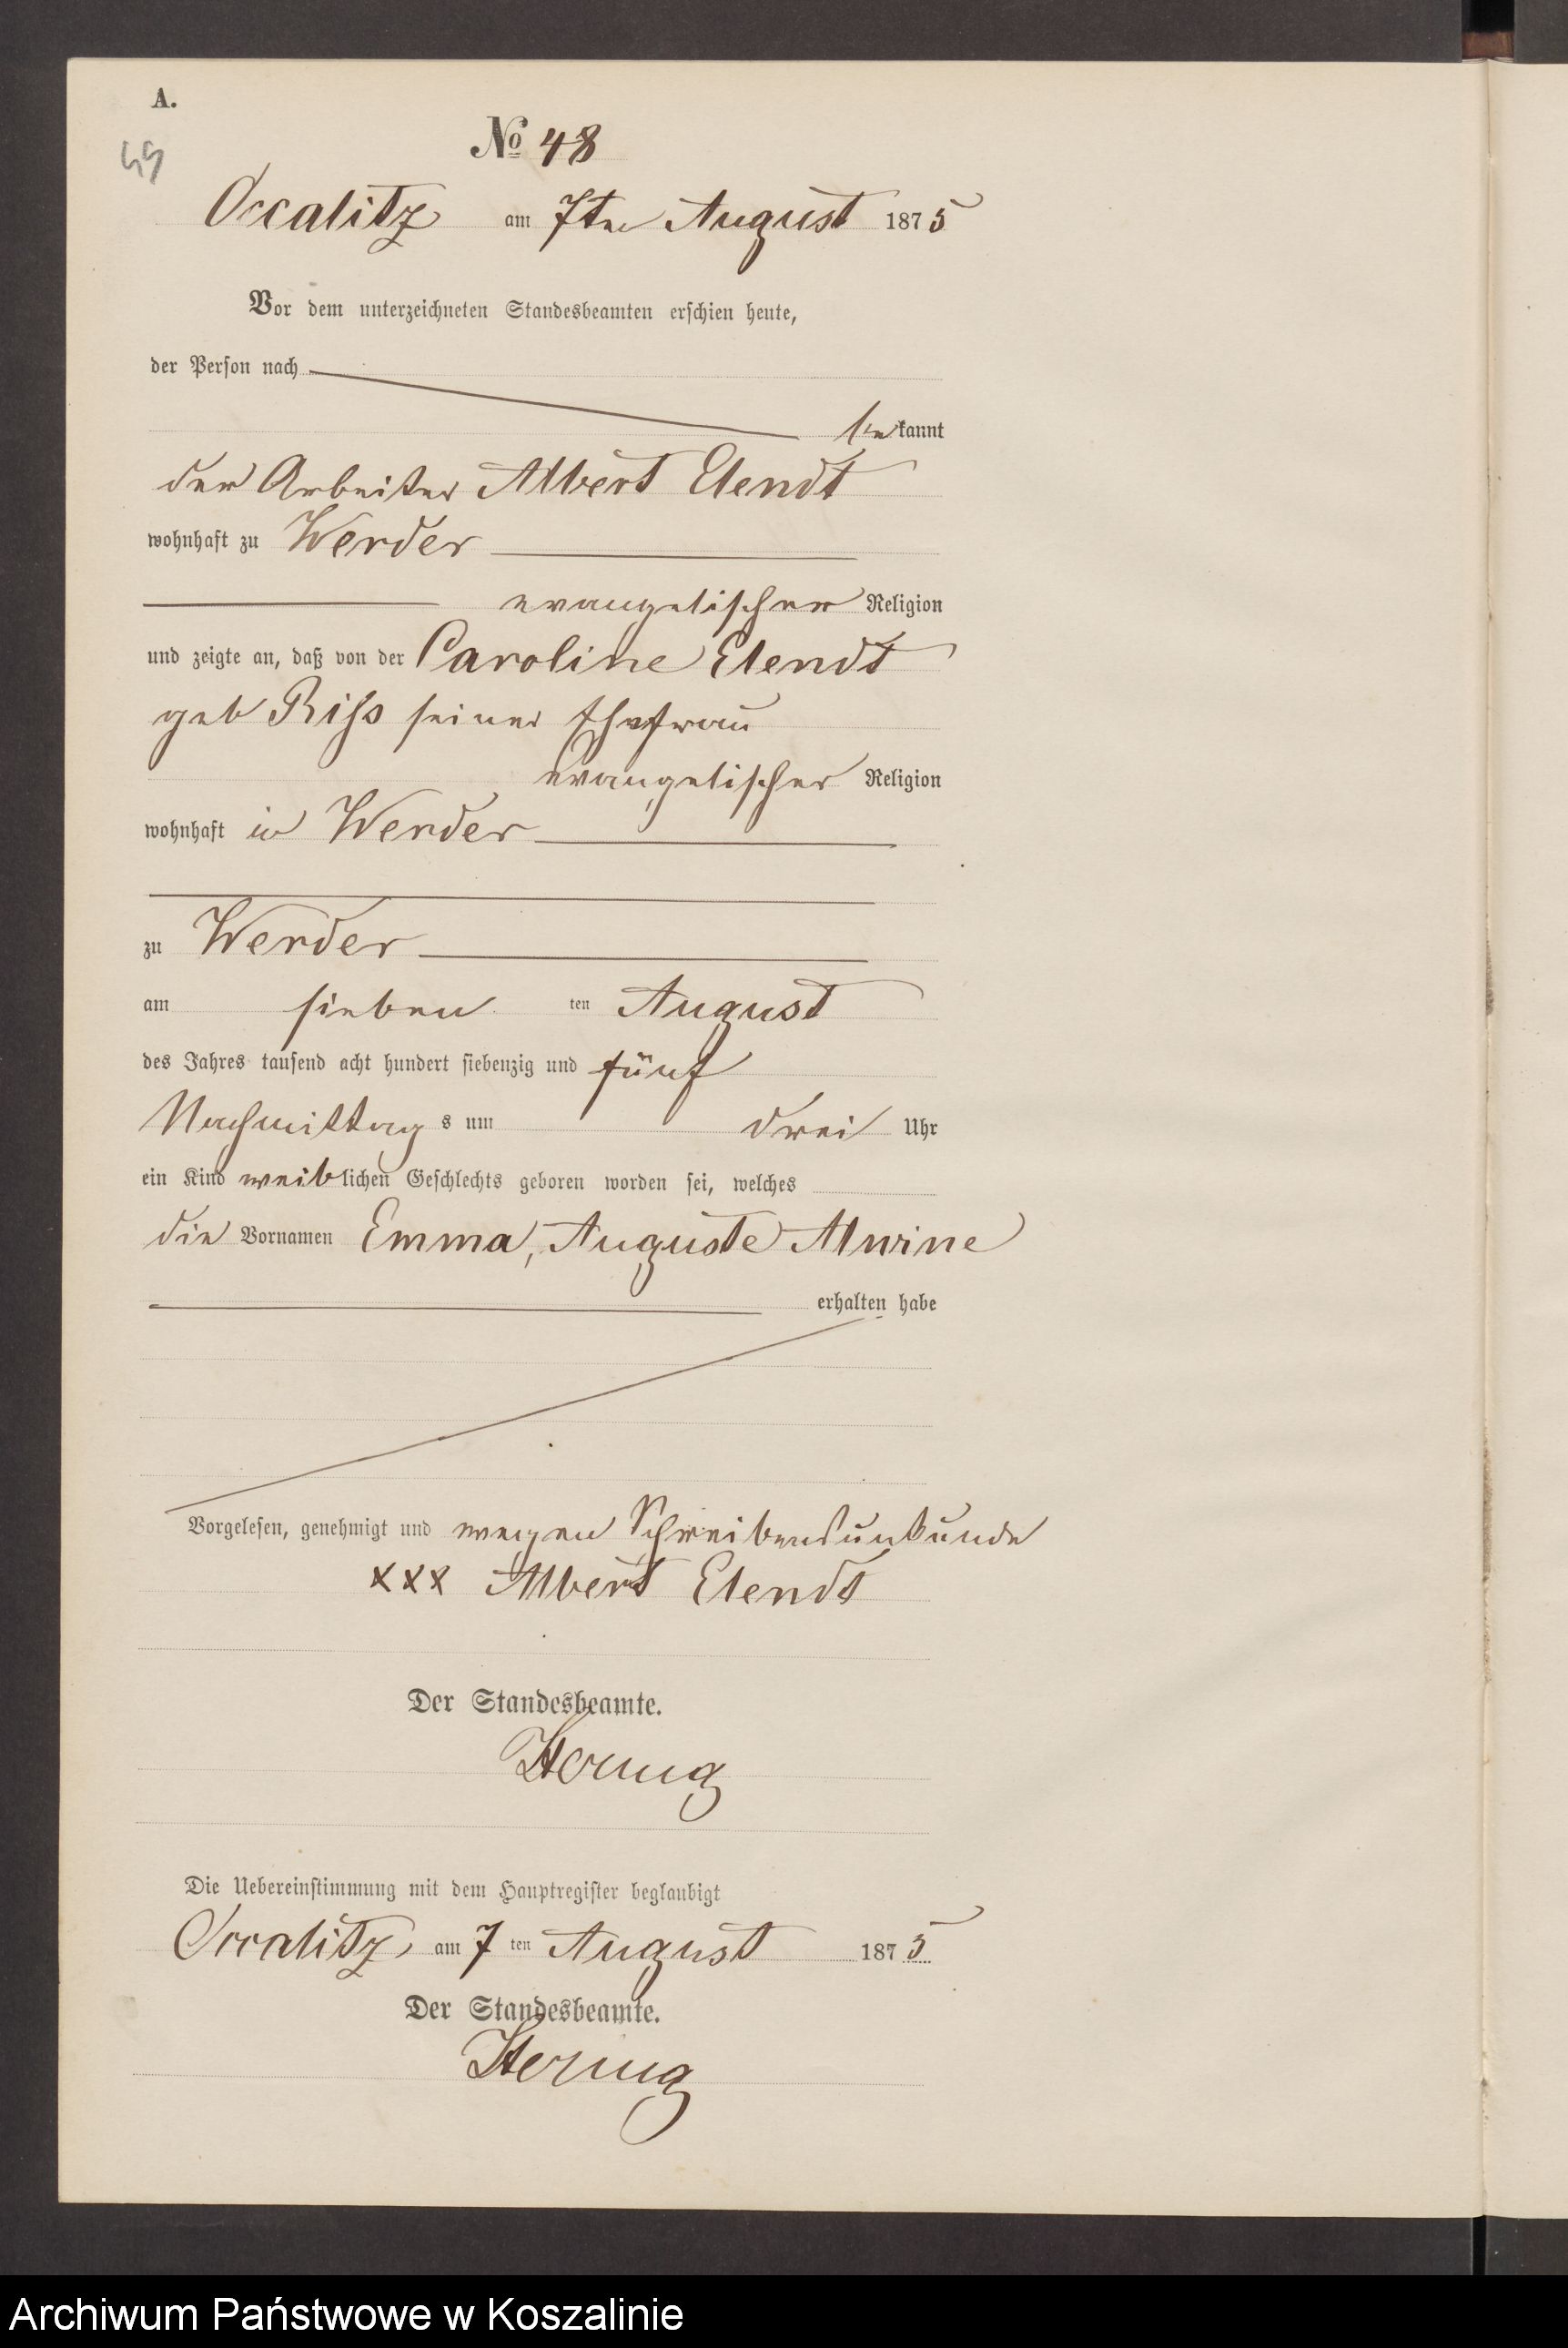 A.
49
№ 48
Occalitz am 7ten August 1875
Vor dem unterzeichneten Standesbeamten erschien heute,
der Person nach
bekannt
der Arbeiter Albert Elendt
wohnhaft zu Werder
evangelischer Religion
und zeigte an, daß von der Caroline Elendt
geb Riss seiner Ehefrau
evangelischer Religion
wohnhaft in Werder
zu Werder
am sieben ten August
des Jahres tausend acht hundert siebenzig und fünf
Nachmittag s um drei Uhr
ein Kind weiblichen Geschlechts geboren worden sei, welches
die Vornamen Emma, Auguste Alwine
erhalten habe
Vorgelesen, genehmigt und wegen Schreibensunkunde
xxx Albert Elendt
Der Standesbeamte.
Die Uebereinstimmung mit dem Hauptregister beglaubigt
Occalitz am 7 ten August 1875
Der Standesbeamte.
Archiwum Państwowe w Koszalinie